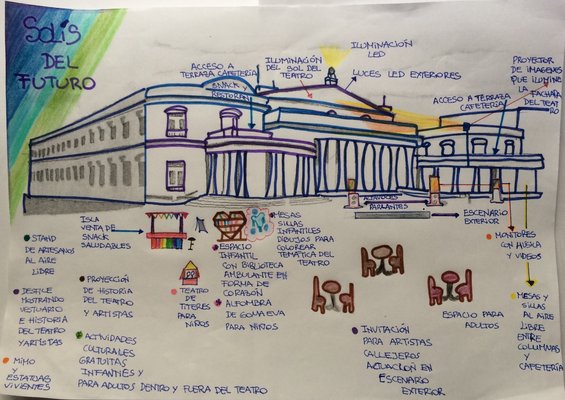 SOLÍS
DEL
FUTURO
ACCESO A
TERRAZA CAFETERÍA
SNACK Y
RESTORÁN
ILUMINACIÓN
DEL SOL DEL
TEATRO
ILUMINACIÓN
LED
LUCES LED EXTERIORES
PROYECTOR
DE IMÁGENES
QUE ILUMINE
LA
FACHADA
DEL TEATRO
ACCESO A TERRAZA
CAFETERÍA
ALTAVOCES
PARLANTES
ESCENARIO
EXTERIOR
STAND
DE
ARTESANOS
AL AIRE
LIBRE
ISLA
VENTA DE
SNACK
SALUDABLES
MESAS
SILLAS
INFANTILES
DIBUJOS PARA
COLOREAR
TEMÁTICA DEL
TEATRO
ESPACIO
INFANTIL
CON BIBLIOTECA
AMBULANTE EN
FORMA DE
CORAZÓN
ALFOMBRA
DE GOMA EVA
PARA NIÑOS
TEATRO
DE
TITERES
PARA
NIÑOS
MONITORES
CON MÚSICA
Y VIDEOS
DESFILE
MOSTRANDO
VESTUARIO
E HISTORIA
DEL TEATRO
Y ARTISTAS
PROYECCIÓN
DE HISTORIA
DEL TEATRO
Y ARTISTAS
ACTIVIDADES
CULTURALES
GRATUITAS
INFANTILES Y
PARA ADULTOS DENTRO Y FUERA DEL TEATRO
MIMO
Y
ESTATUAS
VIVIENTES
INVITACIÓN
PARA ARTISTAS
CALLEJEROS
ACTUACIÓN EN
ESCENARIO
EXTERIOR
ESPACIO PARA
ADULTOS
MESAS Y
SILLAS AL
AIRE
LIBRE
ENTRE
COLUMNAS Y
CAFETERÍA